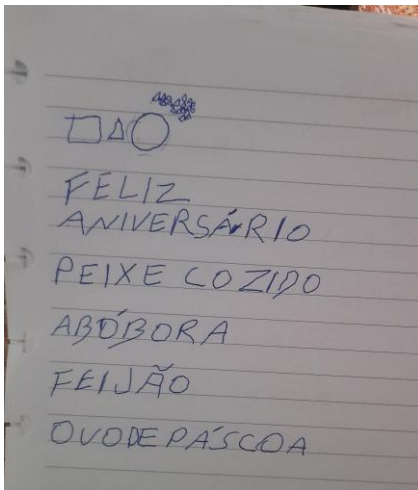 FELIZ
ANIVERSÁRIO
PEIXE COZIDO
ABÓBORA
FEIJÃO
OVO DE PÁSCOA